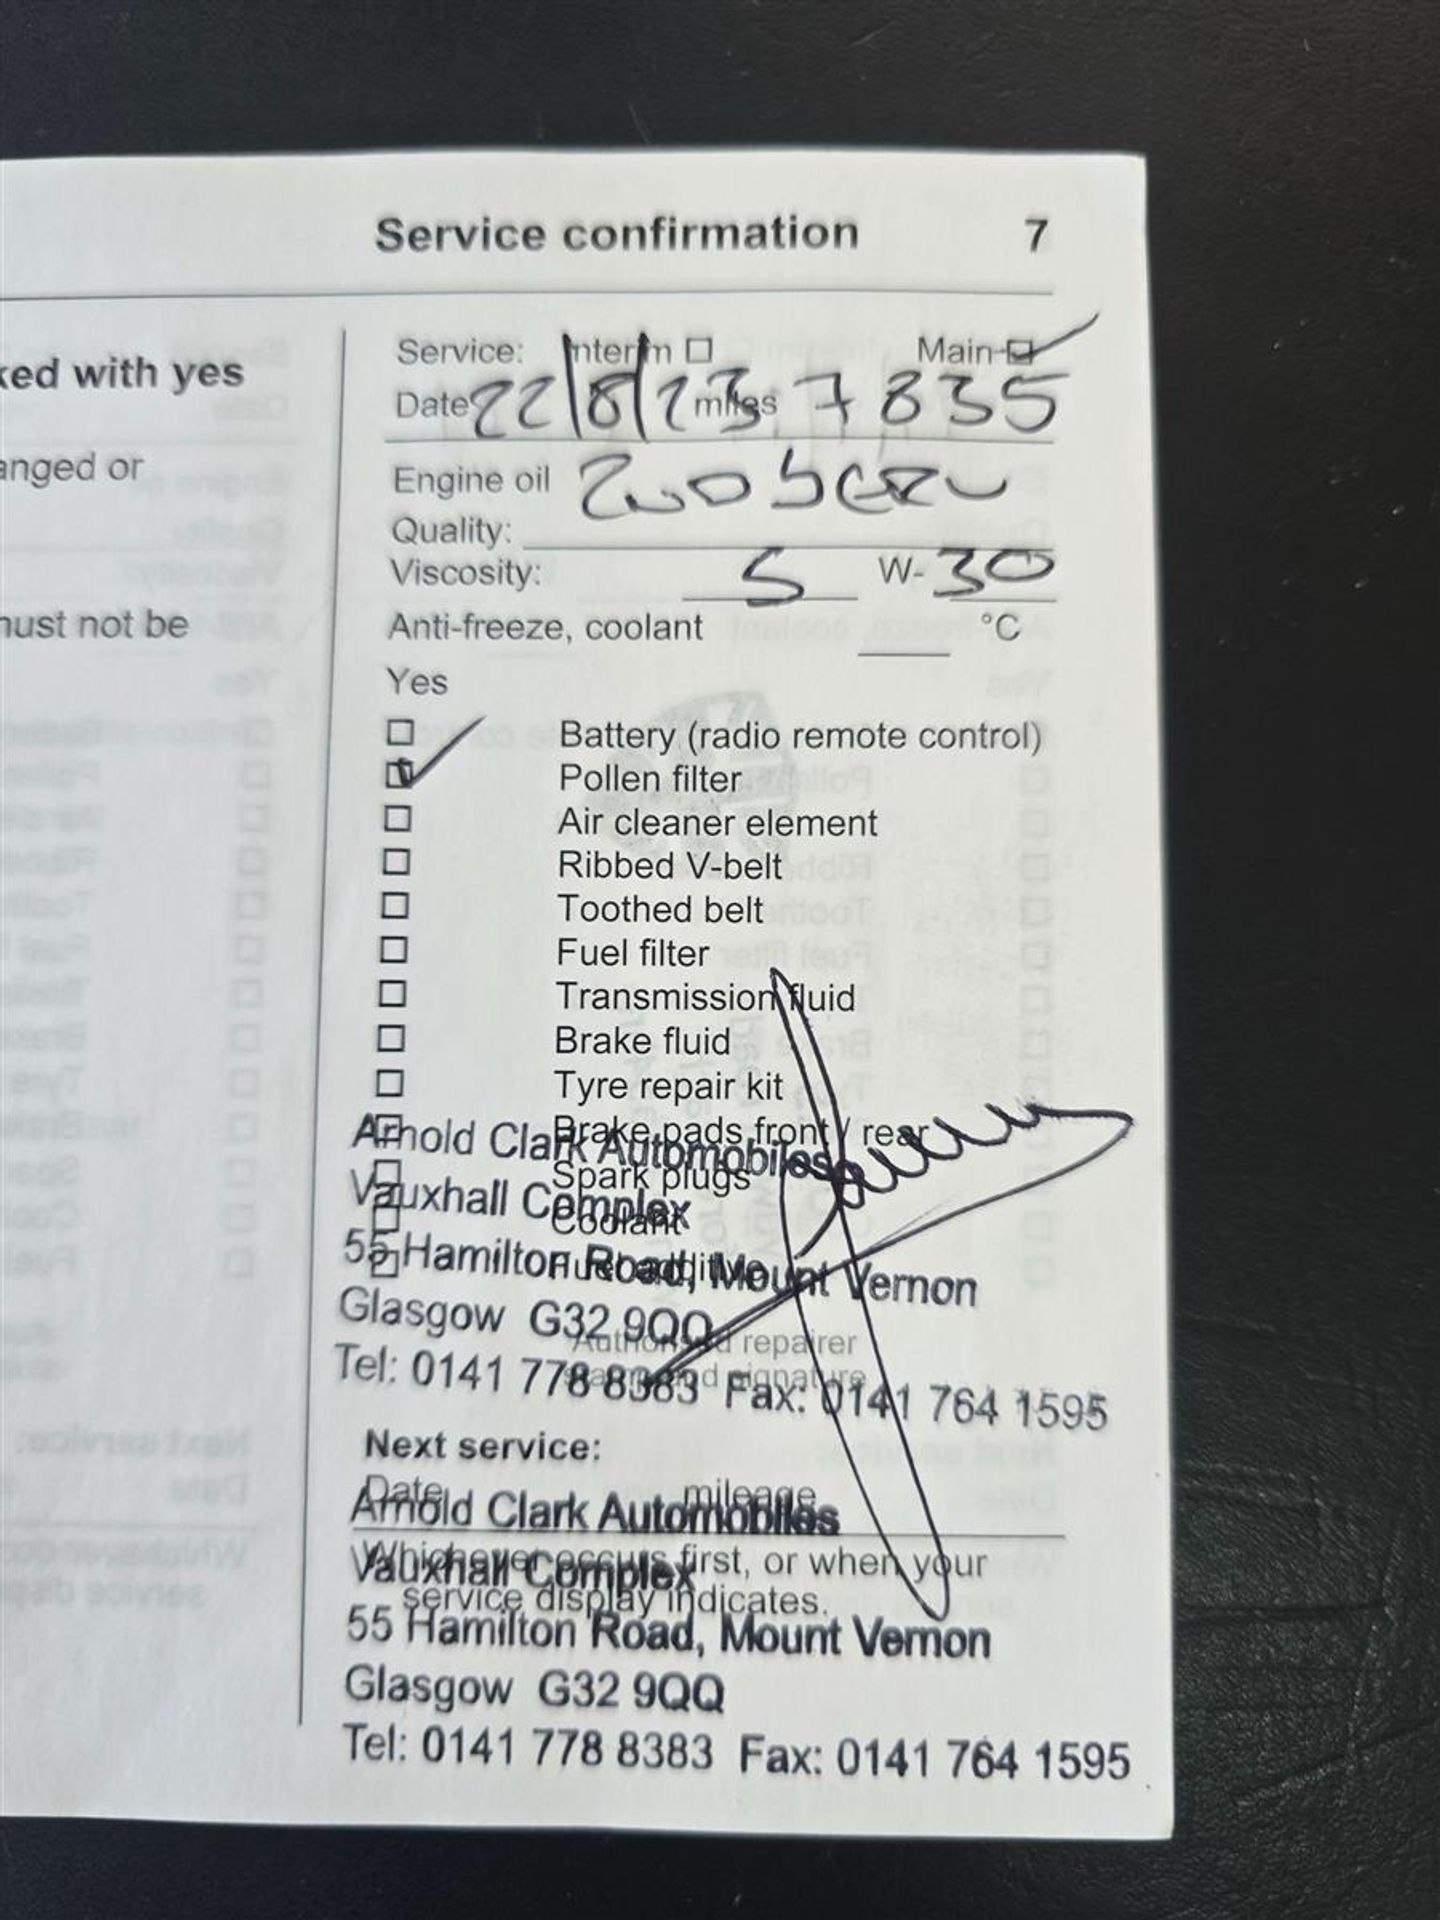 Service confirmation 7
ked with yes
anged or
must not be
Service: Interim ☐ Main ☑
Date 22/8/23 miles 7835
Engine oil
Quality:
Viscosity: 5 W-30
Anti-freeze, coolant °C
Yes
☐ Battery (radio remote control)
☑ Pollen filter
☐ Air cleaner element
☐ Ribbed V-belt
☐ Toothed belt
☐ Fuel filter
☐ Transmission fluid
☐ Brake fluid
☐ Tyre repair kit
☐ Brake pads front / rear
Arnold Clark Automobiles
☐ Spark plugs
Vauxhall Complex
☐ Coolant
55 Hamilton Road, Mount Vernon
☐ Fuel additive
Glasgow G32 9QQ
Authorised repairer
stamp and signature
Tel: 0141 778 8383 Fax: 0141 764 1595
Next service:
Date mileage
Arnold Clark Automobiles
Whichever occurs first, or when your
Vauxhall Complex
service display indicates.
55 Hamilton Road, Mount Vernon
Glasgow G32 9QQ
Tel: 0141 778 8383 Fax: 0141 764 1595